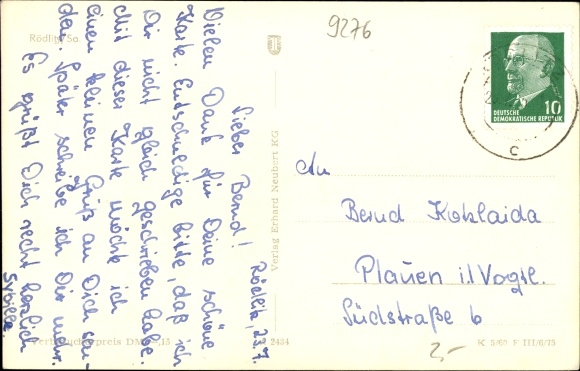 9276
Rödlitz/Sa.
Rödlitz, 23.7.
Lieber Bernd!
Vielen Dank für Deine schöne
Karte. Entschuldige bitte, daß ich
Dir nicht gleich geschrieben habe.
Mit dieser Karte möchte ich
einen kleinen Gruß an Dich sen-
den. Später schreibe ich Dir mehr.
Es grüßt Dich recht herzlich
Sybille.
Verlag Erhard Neubert KG
2434
Verbraucherpreis DM -,15
10
DEUTSCHE
DEMOKRATISCHE REPUBLIK
c
An
Bernd Kotzlaida
Plauen i./Vogtl.
Südstraße 6
K 5/60 F III/6/25
2,-